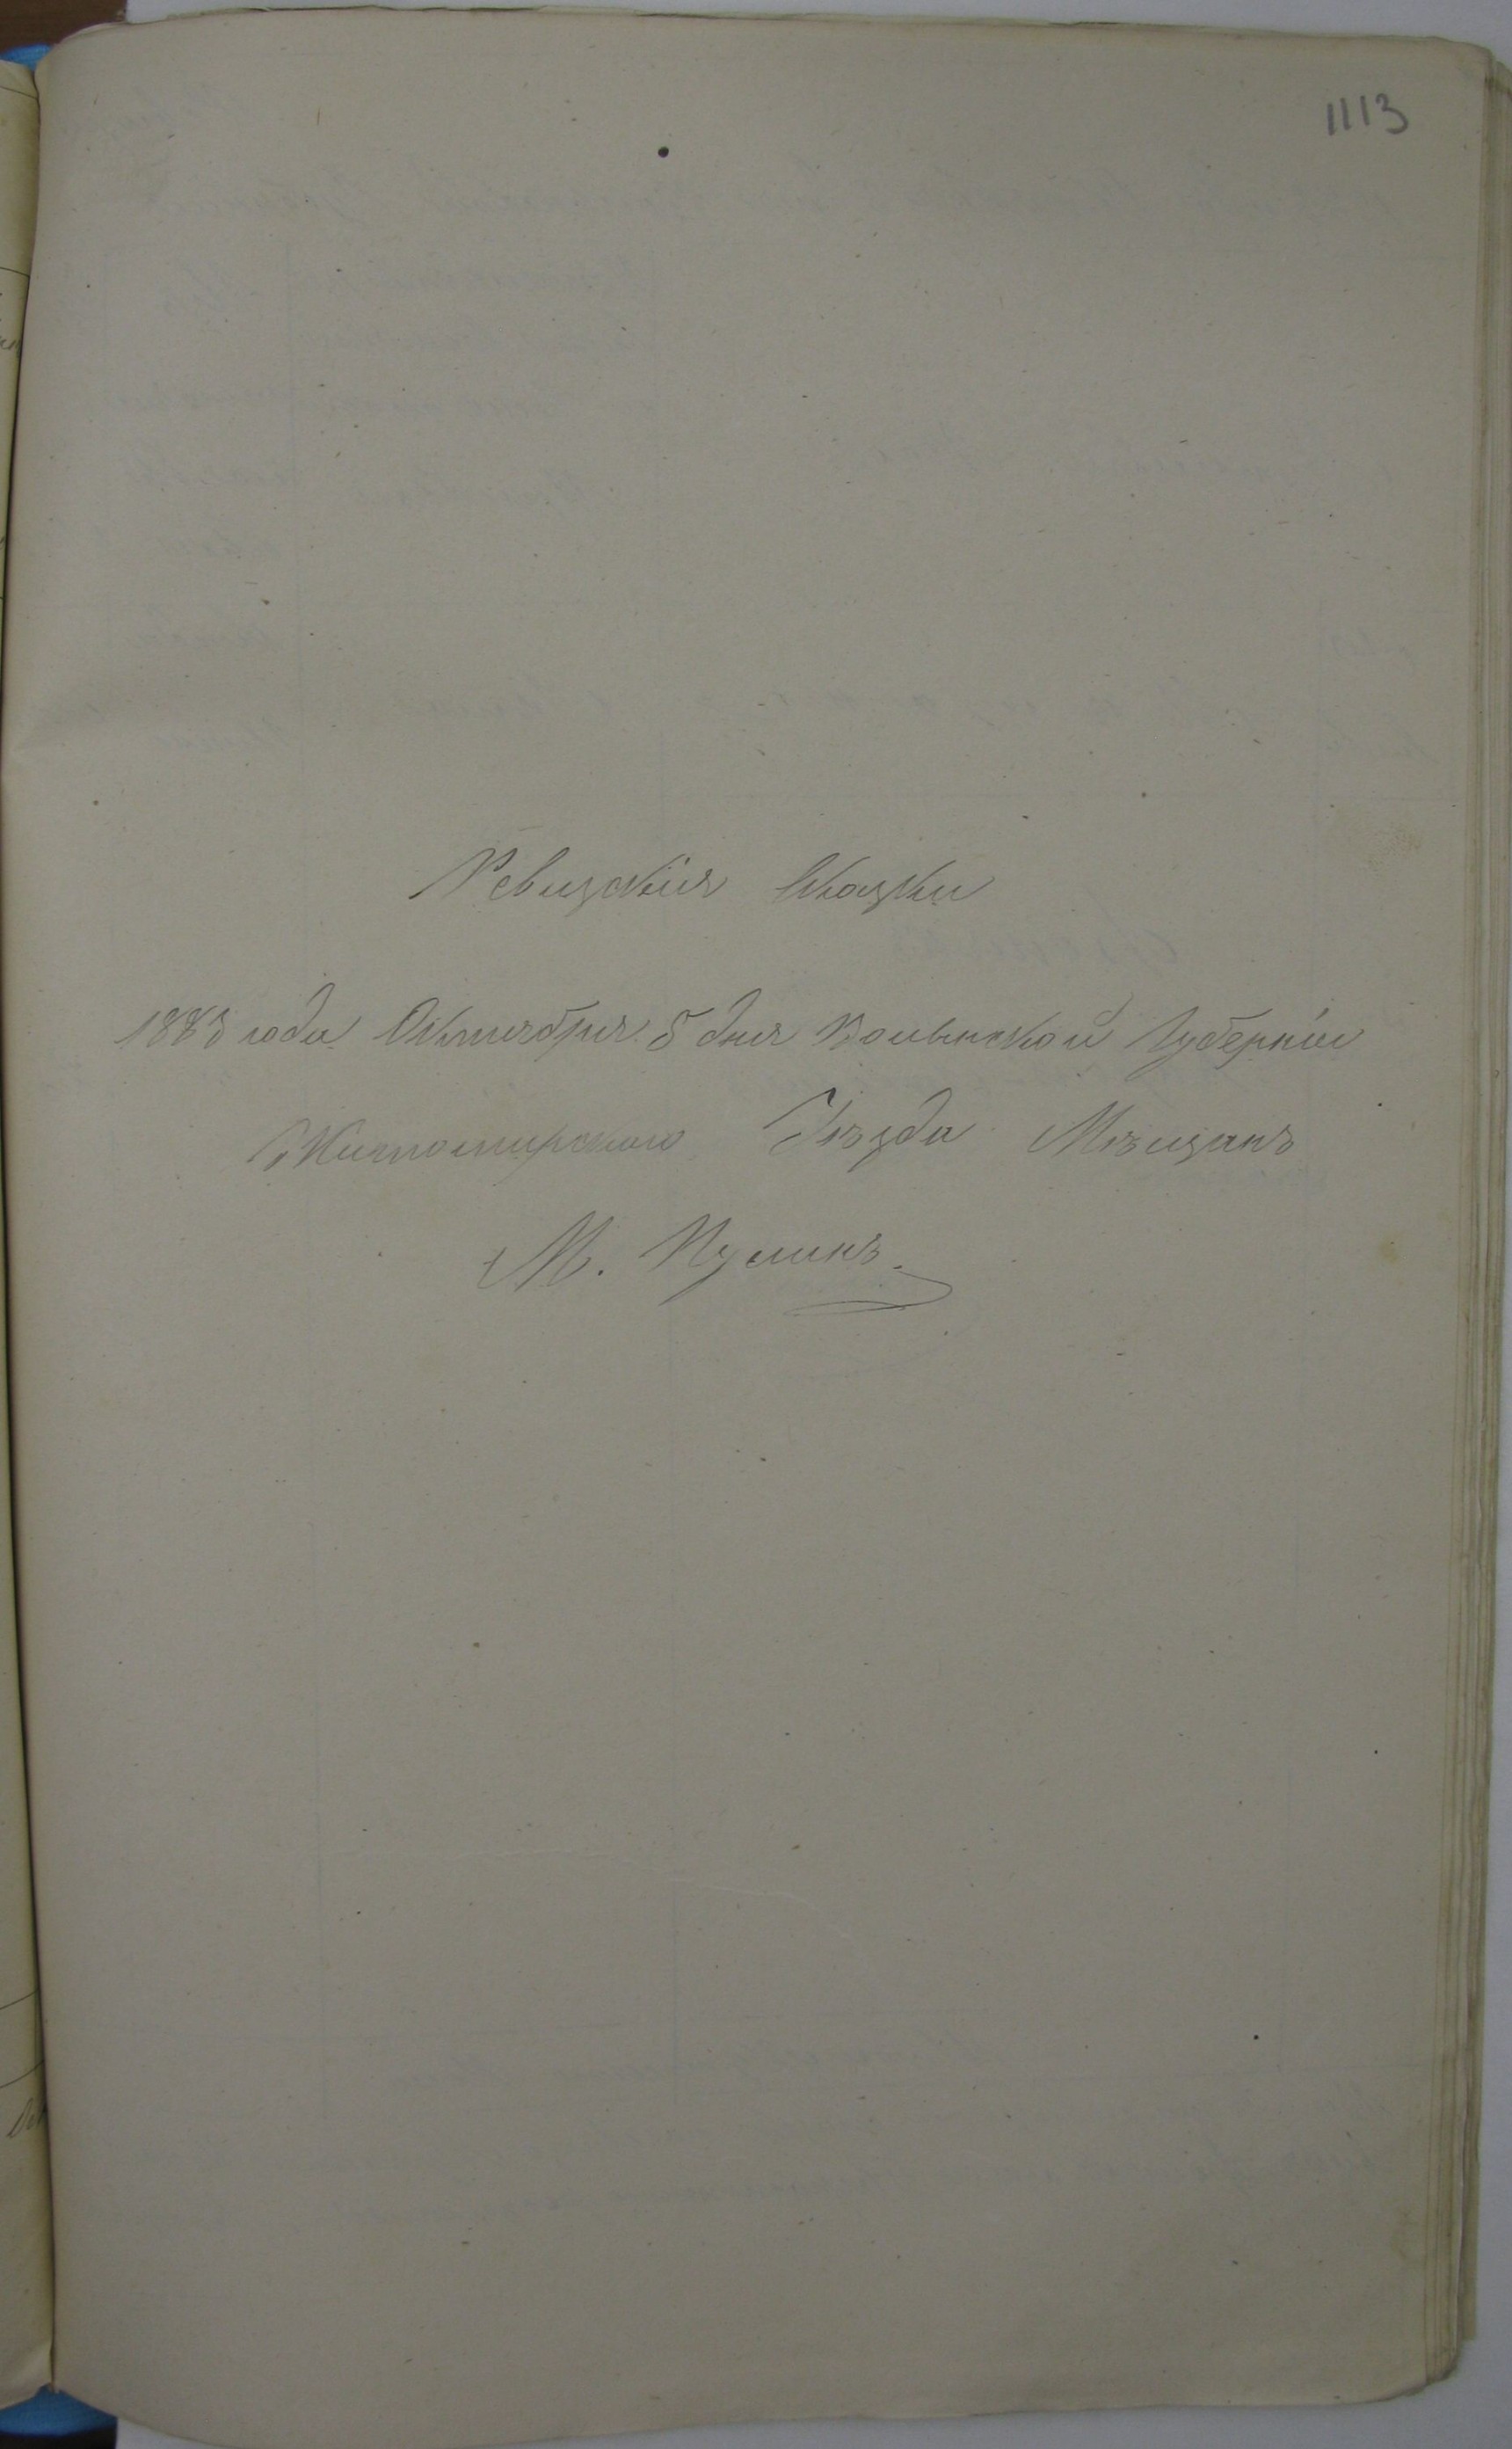 1113
Ревизскія Сказки
1883 года Октября 5 дня Волынской Губерніи
Житомирскаго Уѣзда Мѣщанъ
М. Пулинъ.